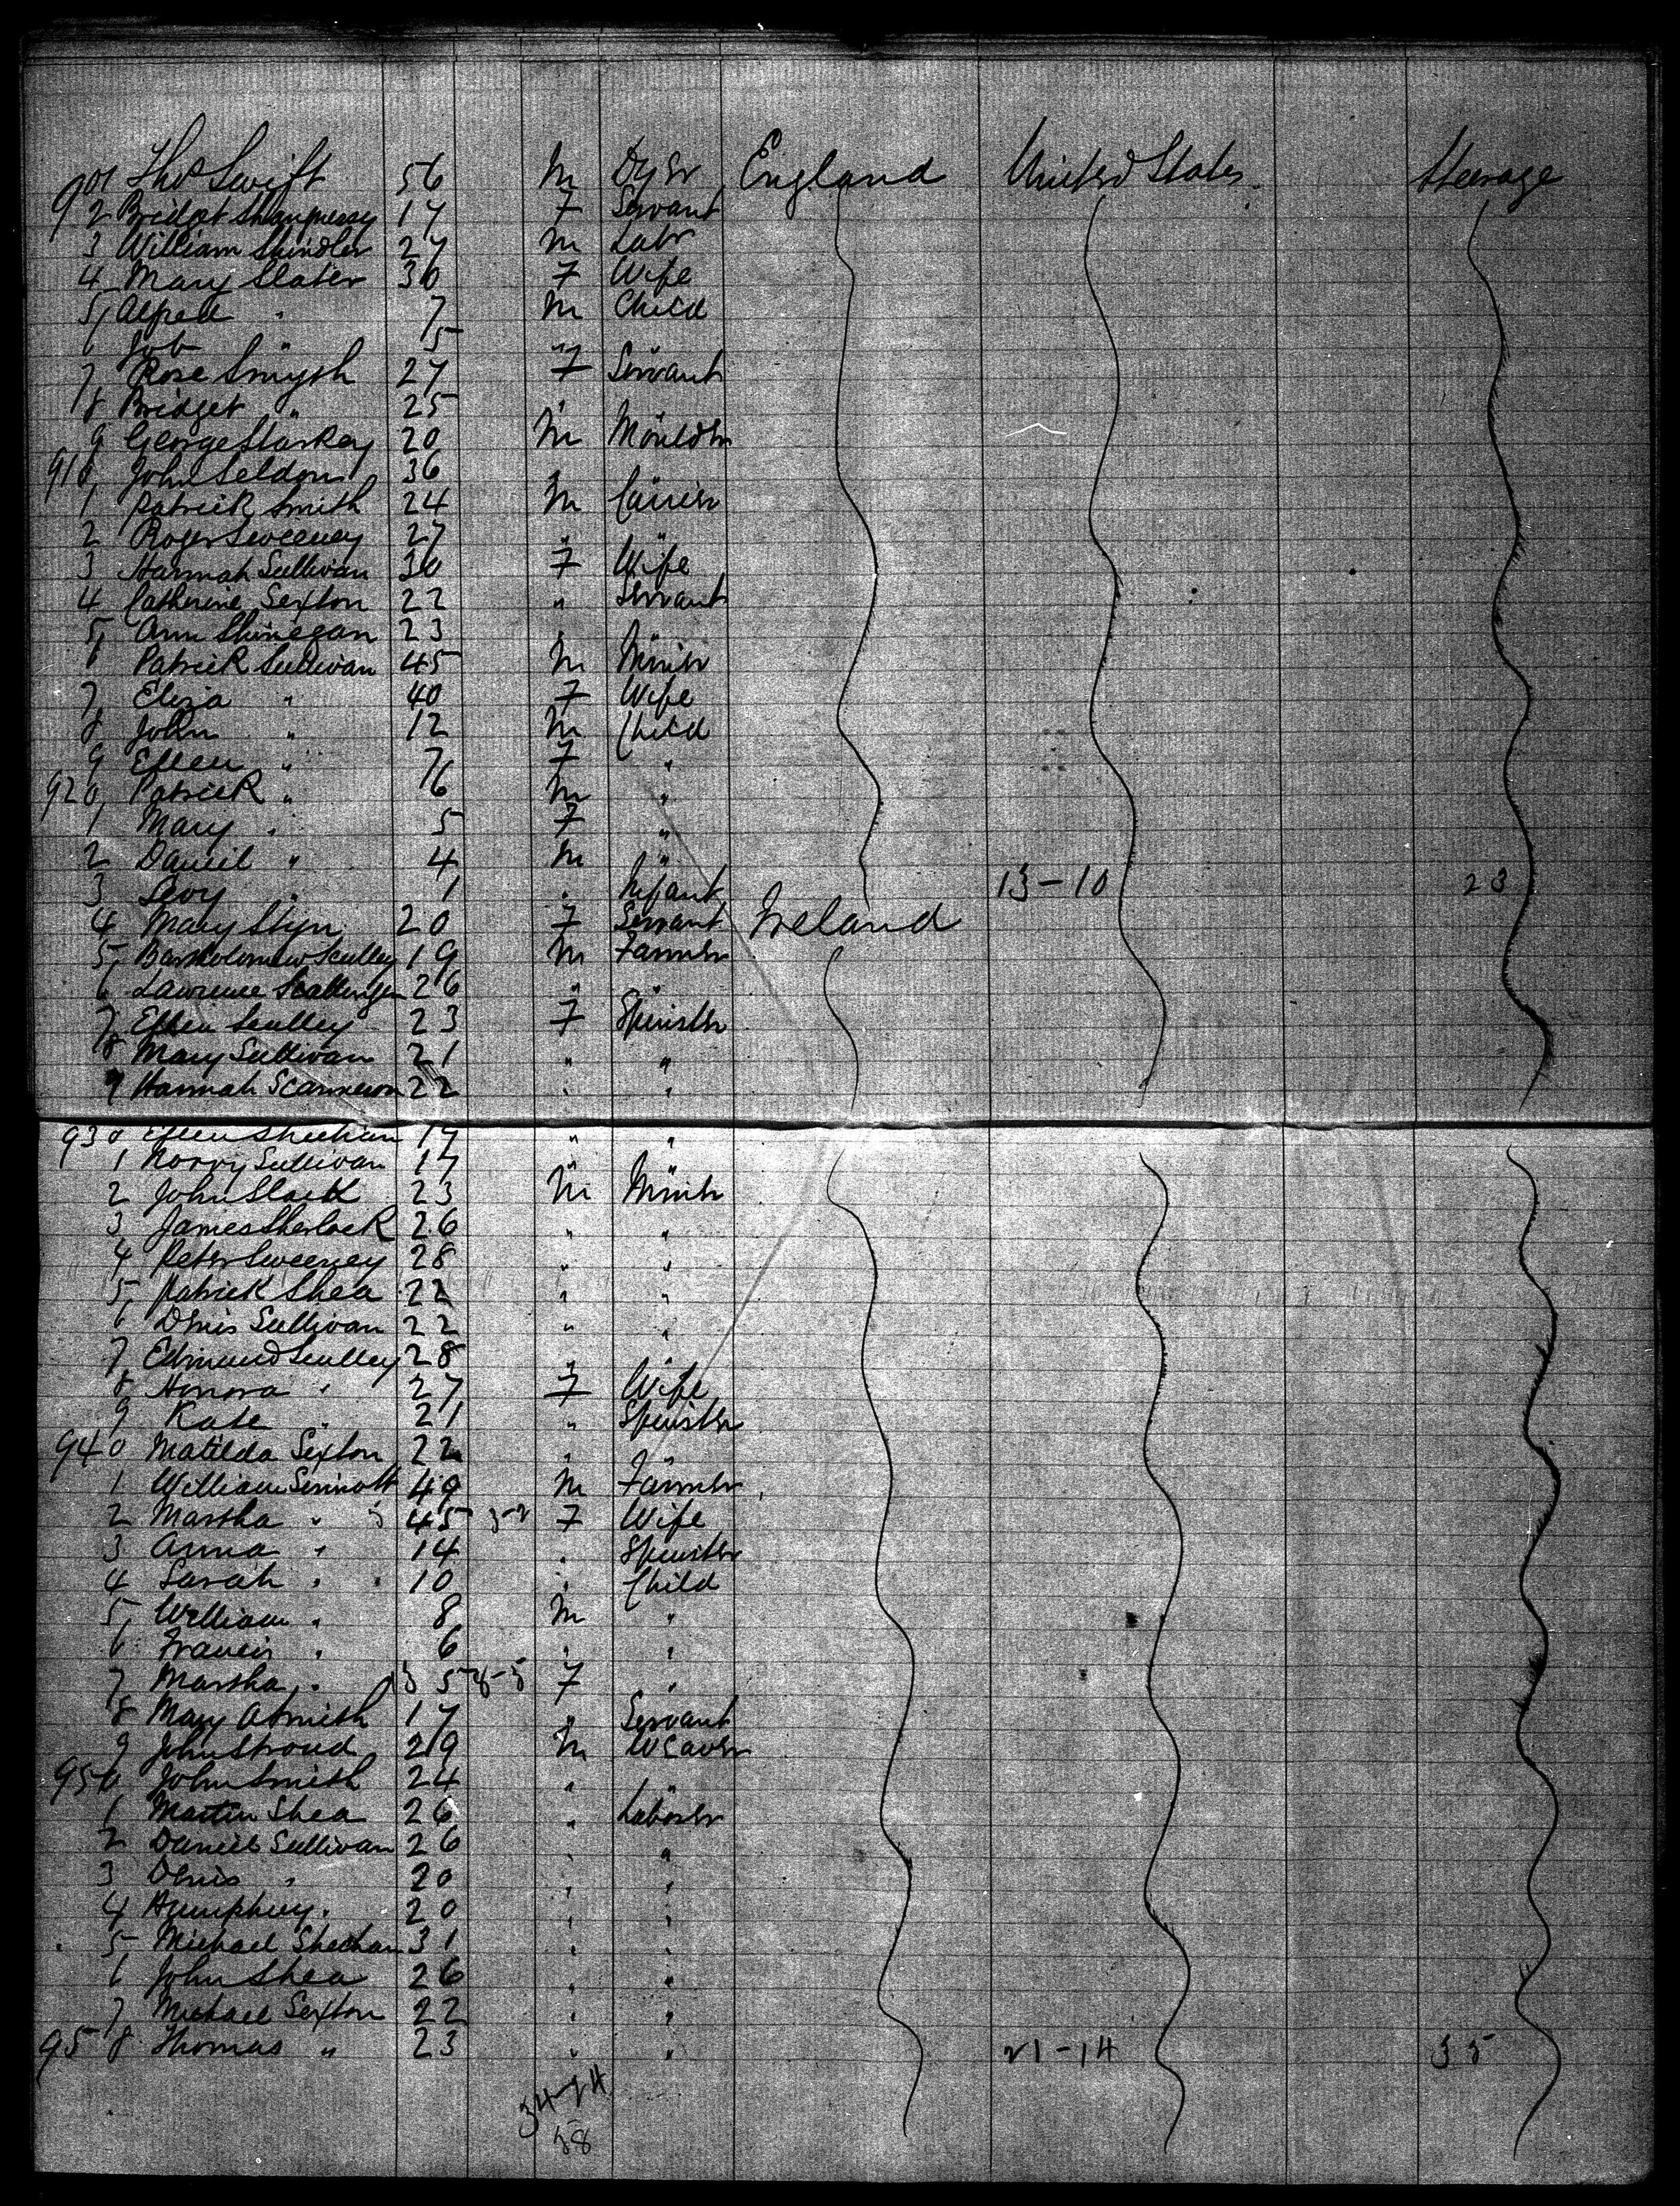 901 Thos Swift 56 M Dyer England United States Steerage
2 Bridget Shaughnessy 17 F Servant
3 William Shindler 27 M Labr
4 Mary Slater 30 F Wife
5 Alfred " 7 M Child
6 Job " 5 " "
7 Rose Smyth 27 F Servant
8 Bridget " 25 " "
9 George Starkey 20 M Moulder
910 John Seldon 36 " "
1 Patrick Smith 24 M Carrier
2 Roger Sweeney 27 " "
3 Hannah Sullivan 30 F Wife
4 Catherine Sexton 22 " Servant
5 Ann Shinegan 23 " "
6 Patrick Sullivan 45 M Miner
7 Eliza " 40 F Wife
8 John " 12 M Child
9 Ellen " 7 F "
920 Patrick " 6 M "
1 Mary " 5 F "
2 Daniel " 4 M "
3 Levy " 1 " Infant 13-10 23
4 Mary Styn 20 F Servant Ireland
5 Bartholomew Sculley 19 M Farmer
6 Lawrence 26 " "
7 Ellen Sculley 23 F Spinster
8 Mary Sullivan 21 " "
9 Hannah 22 " "
930 Ellen Sheehan 17 " "
1 Norry Sullivan 17 " "
2 John Slack 23 M Miner
3 James Sherlock 26 " "
4 Peter Sweeney 28 " "
5 Patrick Shea 22 " "
6 Denis Sullivan 22 " "
7 Edmund Sculley 28 " "
8 Honora " 27 F Wife
9 Kate " 21 " Spinster
940 Matilda Sexton 22 " "
1 William Sinnott 49 M Farmer
2 Martha " 45 F Wife
3 Anna " 14 " Spinster
4 Sarah " 10 " Child
5 William " 8 M "
6 Francis " 6 " "
7 Martha " 5 F "
8 Mary A Smith 17 " Servant
9 John Stroud 29 M Weaver
950 John Smith 24 " "
1 Martin Shea 26 " Laborer
2 Daniel Sullivan 26 " "
3 Denis " 20 " "
4 Humphrey " 20 " "
5 Michael Sheehan 31 " "
6 John Shea 26 " "
7 Michael Sexton 22 " "
958 Thomas " 23 " " 21-14 35
34-24
58